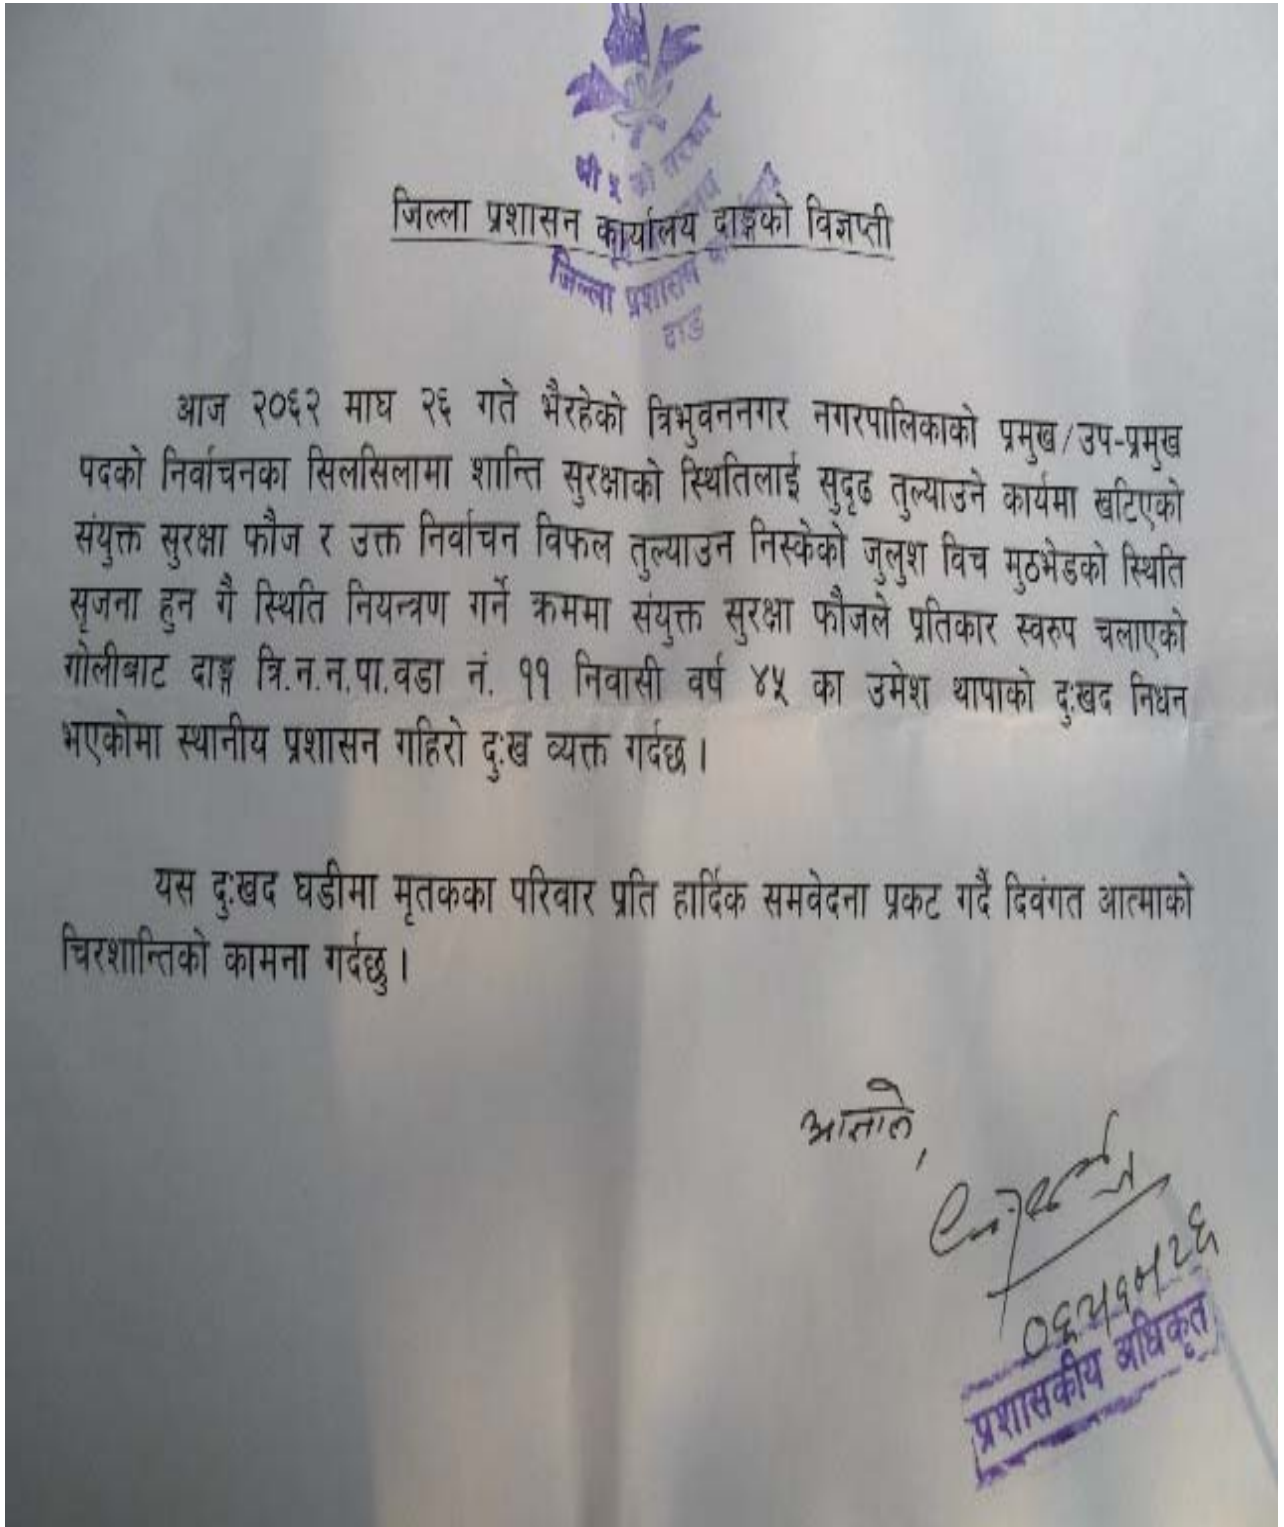 श्री ५ को सरकार
जिल्ला प्रशासन कार्यालय दाङ्गको विज्ञप्ती
जिल्ला प्रशासन
दाङ
आज २०६२ माघ २६ गते भैरहेको त्रिभुवननगर नगरपालिकाको प्रमुख/उप-प्रमुख
पदको निर्वाचनका सिलसिलामा शान्ति सुरक्षाको स्थितिलाई सुदृढ तुल्याउने कार्यमा खटिएको
संयुक्त सुरक्षा फौज र उक्त निर्वाचन विफल तुल्याउन निस्केको जुलुश विच मुठभेडको स्थिति
सृजना हुन गै स्थिति नियन्त्रण गर्ने क्रममा संयुक्त सुरक्षा फौजले प्रतिकार स्वरुप चलाएको
गोलीबाट दाङ्ग त्रि.न.न.पा.वडा नं. ११ निवासी वर्ष ४५ का उमेश थापाको दु:खद निधन
भएकोमा स्थानीय प्रशासन गहिरो दु:ख व्यक्त गर्दछ ।
यस दु:खद घडीमा मृतकका परिवार प्रति हार्दिक समवेदना प्रकट गर्दै दिवंगत आत्माको
चिरशान्तिको कामना गर्दछु ।
प्रशासकीय अधिकृत